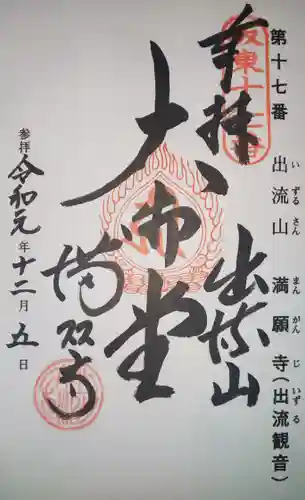 第十七番 出流山 満願寺(出流観音)
いずるさん まんがんじ いずる
奉拝
坂東十七番
出流山
大御堂
満願寺
参拝 令和元年十二月五日